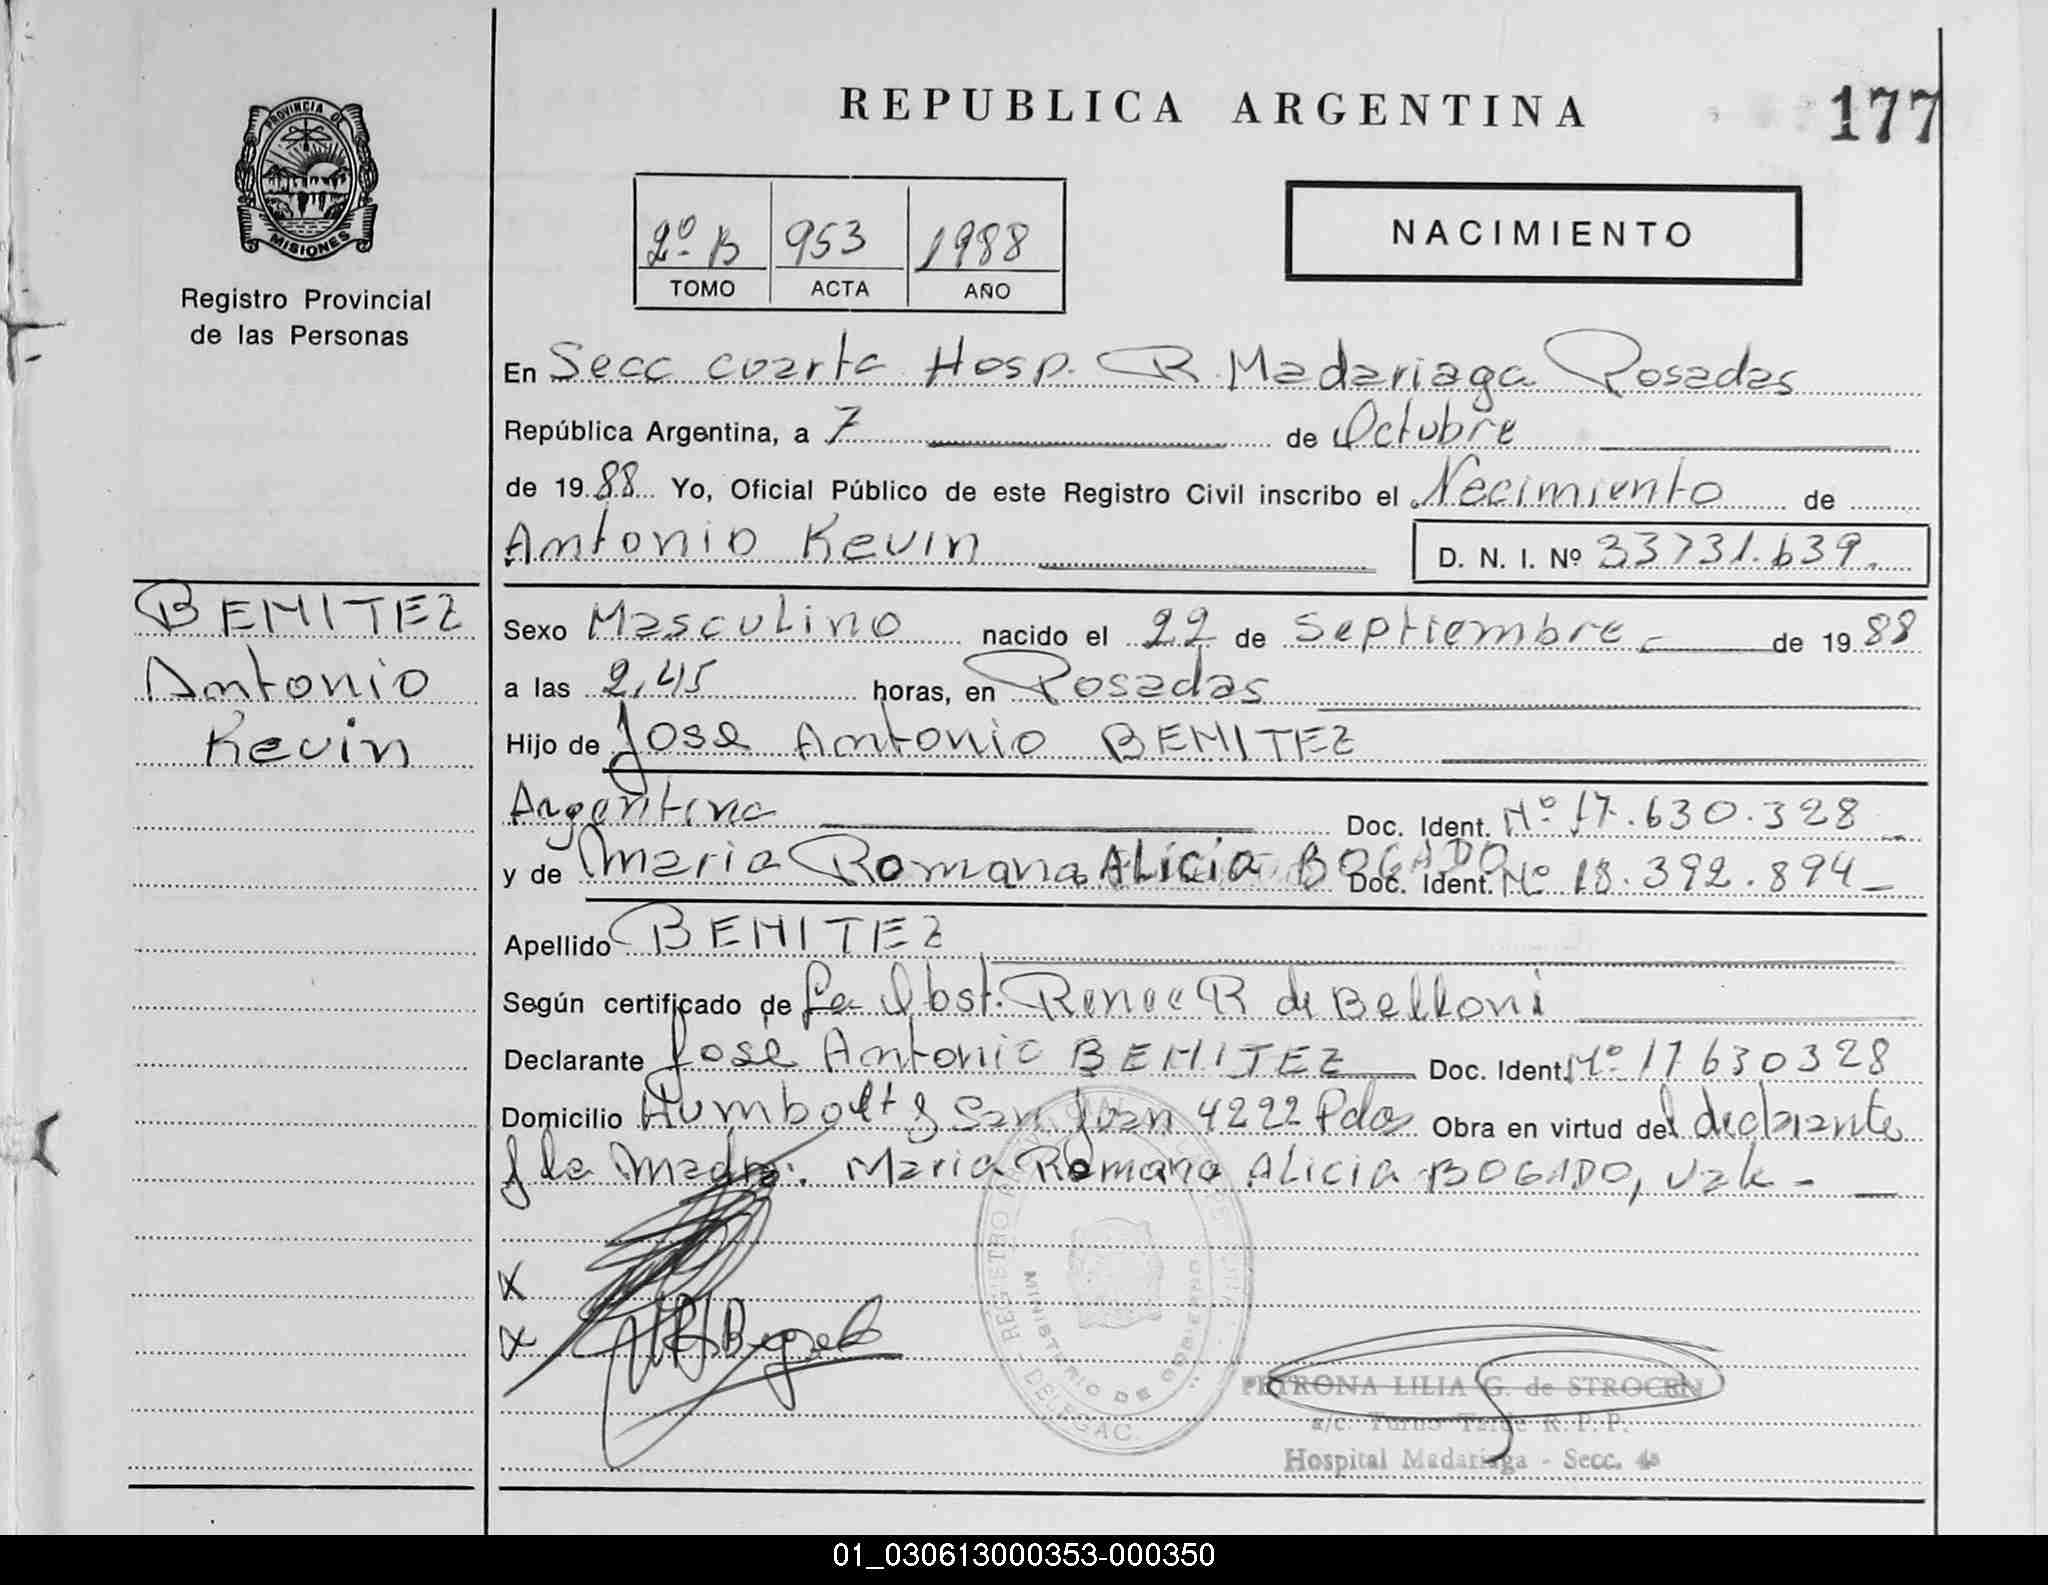 REPUBLICA ARGENTINA
177
PROVINCIA DE
MISIONES
Registro Provincial
de las Personas
2º B 953 1988
TOMO ACTA AÑO
NACIMIENTO
En Secc cuarta Hosp. R. Madariaga Posadas
República Argentina, a 7 de Octubre
de 1988 Yo, Oficial Público de este Registro Civil inscribo el Nacimiento de
Antonio Kevin
D. N. I. Nº 33731.639.
BENITEZ
Antonio
Kevin
Sexo Masculino nacido el 22 de Septiembre de 1988
a las 2,45 horas, en Posadas
Hijo de Jose Antonio BENITEZ
Argentina Doc. Ident. Nº 17.630.328
y de Maria Romana Alicia BOGADO Doc. Ident. Nº 18.392.894
Apellido BENITEZ
Según certificado de La Obst. Renee R de Belloni
Declarante Jose Antonio BENITEZ Doc. Ident. Nº 17630328
Domicilio Humbolt y San Juan 4222 Pdas Obra en virtud del declarante
y la Madre: Maria Romana Alicia BOGADO, Vale -
X
X
REGISTRO
MINISTERIO DE GOBIERNO
DELEGAC.
PETRONA LILIA G. de STROCEN
a/c. Turno Tarde R.P.P.
Hospital Madariaga - Secc. 4a
01_030613000353-000350